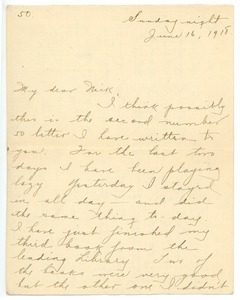 50.
Sunday night
June 16, 1918
My dear Nick,
I think possibly
this is the second number
50 letter I have written to
you. For the last two
days I have been playing
lazy Yesterday I stayed
in all day and did
the same thing to-day.
I have just finished my
third book from the
lending Library. Two of
the books were very good
but the other one I didn't